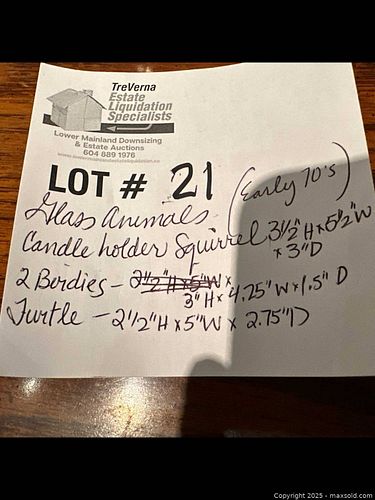 TreVerna
Estate
Liquidation
Specialists
Lower Mainland Downsizing
& Estate Auctions
604 889 1976
LOT # 21
(Early 70's)
Glass Animals -
Candle holder Squirrel 3 1/2" H x 5 1/2" W
x 3" D
2 Birdies - 2 1/2" H x 5" W x
3" H x 4.25" W x 1.5" D
Turtle - 2 1/2" H x 5" W x 2.75" D
Copyright © 2025 - maxsold.com